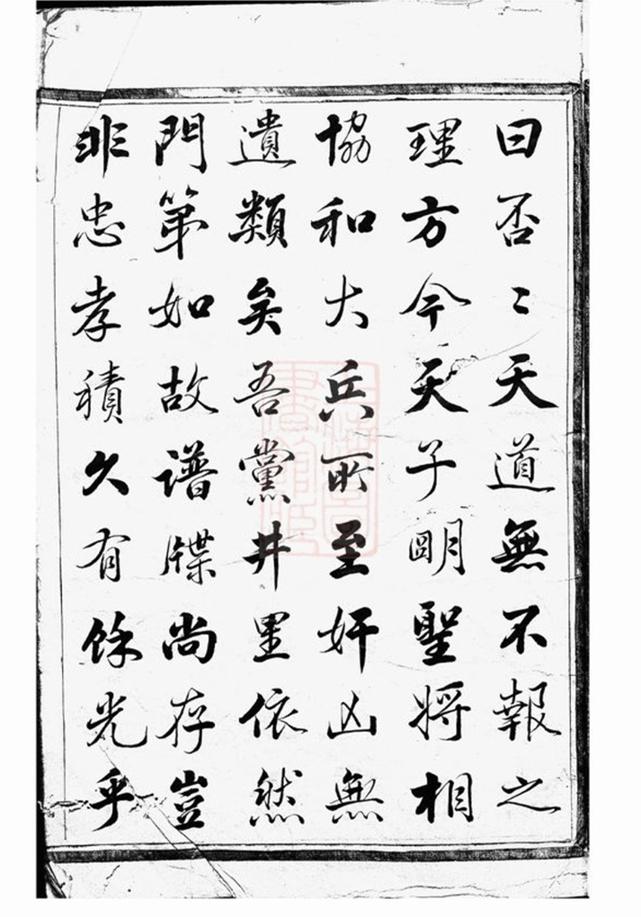 曰否〻天道無不報之
理方今天子明聖將相
協和大兵所至奸凶無
遺類矣吾黨井里依然
門第如故譜牒尚存豈
非忠孝積久有餘光乎